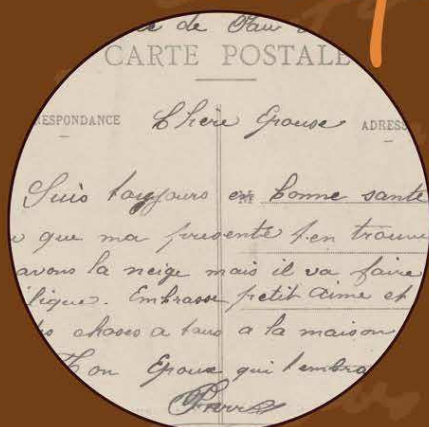 de Pau
CARTE POSTALE
ESPONDANCE Chère Epouse ADRES
Suis toujours en bonne sante
que ma presente t'en trouve
avons la neige mais il va faire
ique. Embrasse petit aime et
choses a tous a la maison
Ton Epoux qui t'embra
Pierre